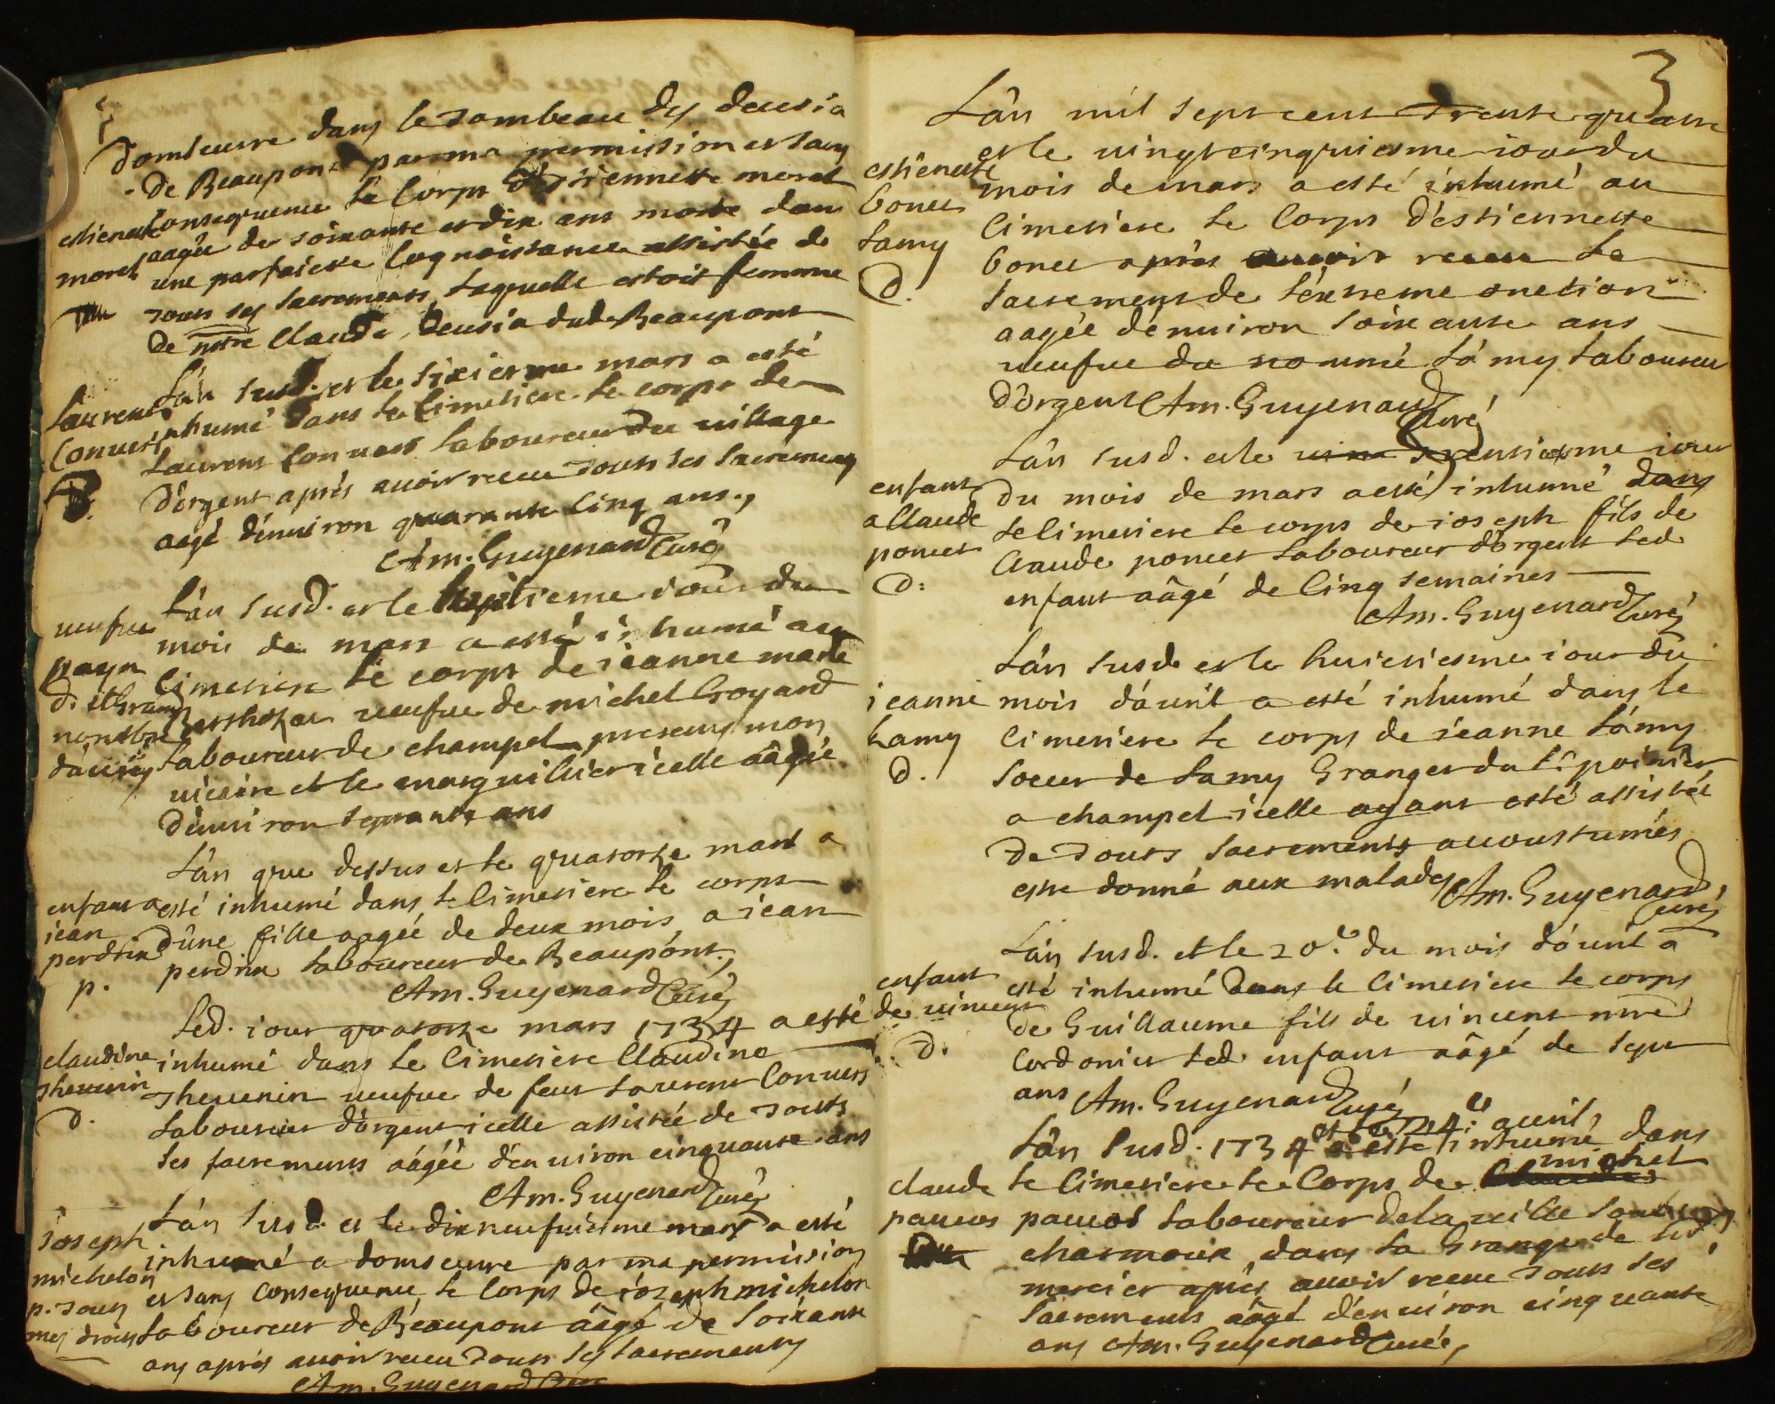 domseuvre dans le tombeau des deusia
de Beaupont par ma permission et sans
consequence le Corps d'Estiennette morel
aagée de soixante et dix ans morte dans
une parfaicte Cognoissance assistée de
tous ses sacrements laquelle estoit femme
de Claude deusia dud. Beaupont
estienette
morel
Lân susd. et le sixiesme mars a esté
inhumé dans le Cimetiere le corps de
Laurent Convers laboureur du village
d'orgent aprés avoir receu touts ses sacrements
aagé d'environ quarante Cinq ans.,
Am. Guyenard Curé
Laurent
Convers
Lân susd. et le septieme iour du
mois de mars a esté inhumé au
Cimetiere le corps de ieanne marie
veufve de michel Goyard
laboureur de champel presents mon
vicaire et le marguillier icelle aâgée
d'environ septante ans
veufve
Lân que dessus et le quatorze mars a
esté inhumé dans le Cimetiere le corps
d'ûne fille aagée de deux mois a iean
perdrix laboureur de Beaupont.,
Am. Guyenard Curé
enfant a
iean
perdrix
p.
Led. iour quatorze mars 1734 a esté
inhumé dans le Cimetiere Claudine
thevenin veufve de feut Laurent Convers
laboureur d'orgent icelle assistée de touts
ses sacrements aâgée d'environ cinquante ans
Am. Guyenard Curé
claudine
thevenin
D.
Lân susd. et le dixneufviesme mars a esté
inhumé a domseuvre par ma permission
et sans consequence le Corps de iozeph michelon
laboureur de Beaupont aâgé de soixante
ans aprés avoir receu touts ses sacrements
Am. Guyenard Curé
ioseph
michelon
p. touts
mes droits
3
Lân mil sept cent trente quatre
et le vingtcinquiesme iour du
mois de mars a esté inhumé au
Cimetiere le Corps d'estiennette
bonet aprés avoir receu le
sacrement de l'extreme onction
aagée d'environ soixante ans
veufve du nommé Lamy laboureur
d'orgent Am. Guyenard
Curé
estienette
bonet
Lamy
D.
Lân susd. et le trentiesme iour
du mois de mars a esté inhumé dans
le Cimetiere le corps de ioseph fils de
Claude poncet laboureur d'orgent led.
enfant aâgé de Cinq semaines
Am. Guyenard Curé
enfant
a Claude
poncet
D.
Lân susd. et le huictiesme iour du
mois d'avril a esté inhumé dans le
Cimetiere le corps de ieanne Lamy
soeur de Lamy Granger du Sr.
a champel icelle ayant esté assistée
de touts sacrements accoustumés
estre donné aux malades Am. Guyenard
Curé
ieanne
Lamy
D.
Lân susd. et le 20e. du mois d'avril a
esté inhumé dans le Cimetiere le corps
de Guillaume fils de vincent
Cordonier led. enfant aâgé de sept
ans Am. Guyenard Curé
enfant
de vincent
D.
Lân susd. 1734 et le 24e. avril
a esté inhumé dans
le Cimetiere le Corps de michel
paucos laboureur de la ville
charmoux dans la Grange de
mercier aprés avoir receu touts ses
sacrements aâgé d'environ cinquante
ans Am. Guyenard Curé
claude
paucos